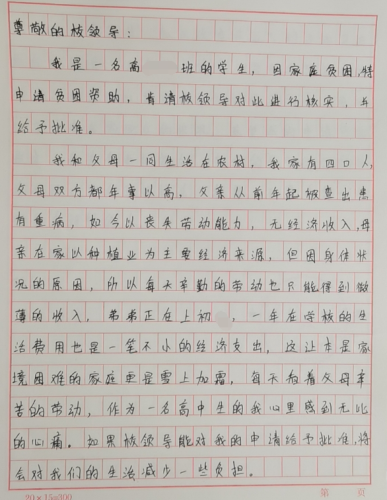 尊敬的校领导：
我是一名高 班的学生，因家庭贫困，特
申请贫困资助，肯请校领导对此进行核实，并
给予批准。
我和父母一同生活在农村，我家有四口人，
父母双方都年事以高，父亲从前年起被查出患
有重病，如今以丧失劳动能力，无经济收入，母
亲在家以种植业为主要经济来源，但因身体状
况的原因，所以每天辛勤的劳动也只能得到微
薄的收入，弟弟正在上初 ，一年在学校的生
活费用也是一笔不小的经济支出，这让本是家
境困难的家庭更是雪上加霜，每天看着父母辛
苦的劳动，作为一名高中生的我心里感到无比
的心痛。如果校领导能对我的申请给予批准，将
会对我们的生活减少一些负担。
20×15=300 第 页